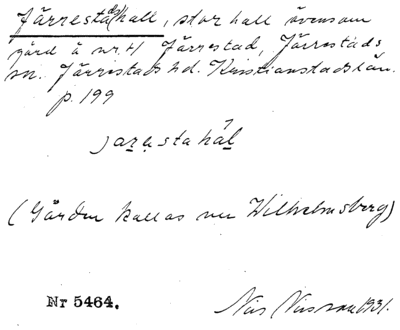 Järrestadshall, stor hall ävensom
gård å nr. 4 Järrestad, Järrestads
sn. Järrestads hd. Kristianstads län.
p. 199
jarestahål
(Gården kallas nu Wilhelmsberg)
Nr 5464.
Nils 1931.